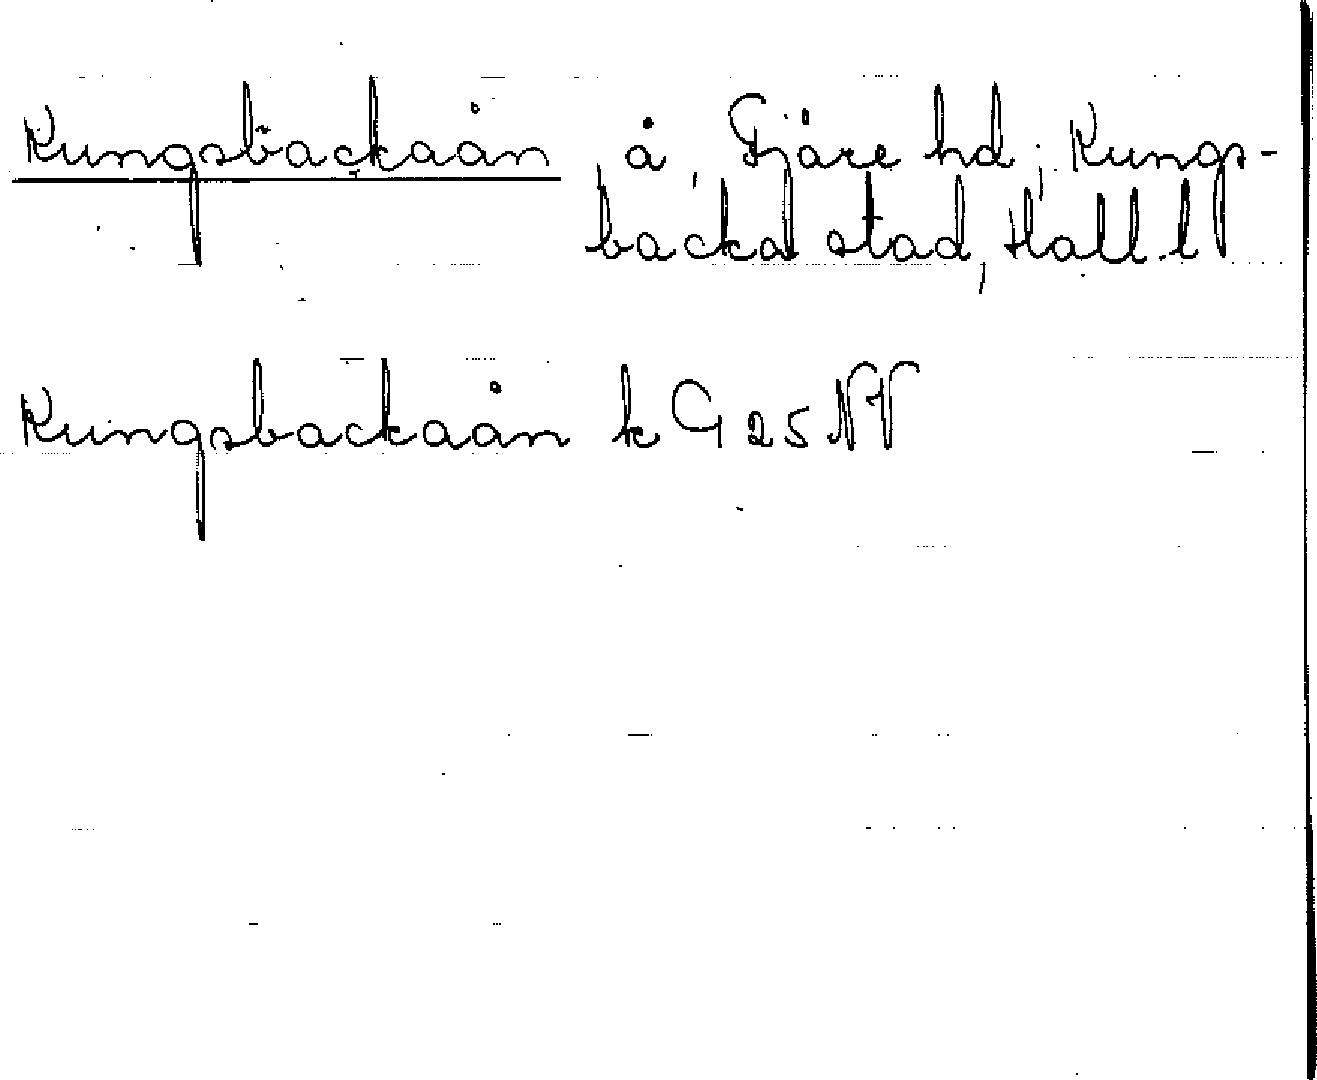 Kungsbackaån å, Fjäre hd; Kungs-
backa stad, Hall. l
Kungsbackaån k G 25 NV